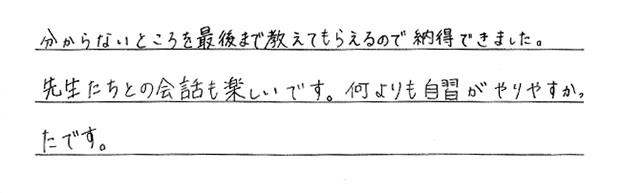 分からないところを最後まで教えてもらえるので納得できました。
先生たちとの会話も楽しいです。何よりも自習がやりやすかっ
たです。